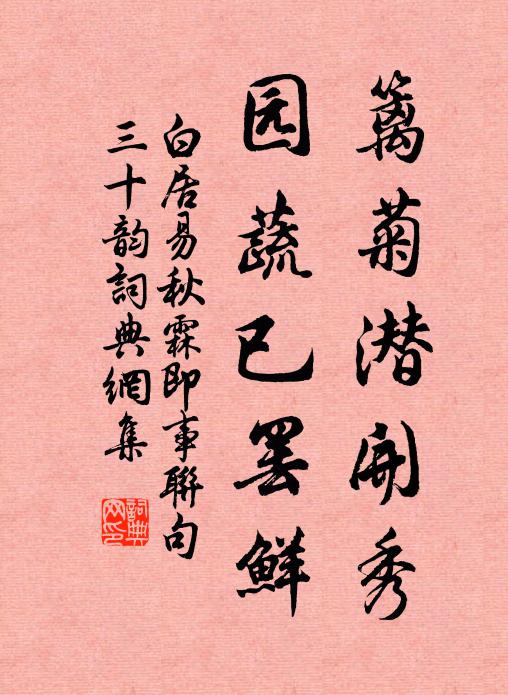 篱菊潜开秀
园蔬已罢鲜
白居易秋霖即事聯句
三十韵詞典網集
詞典网印